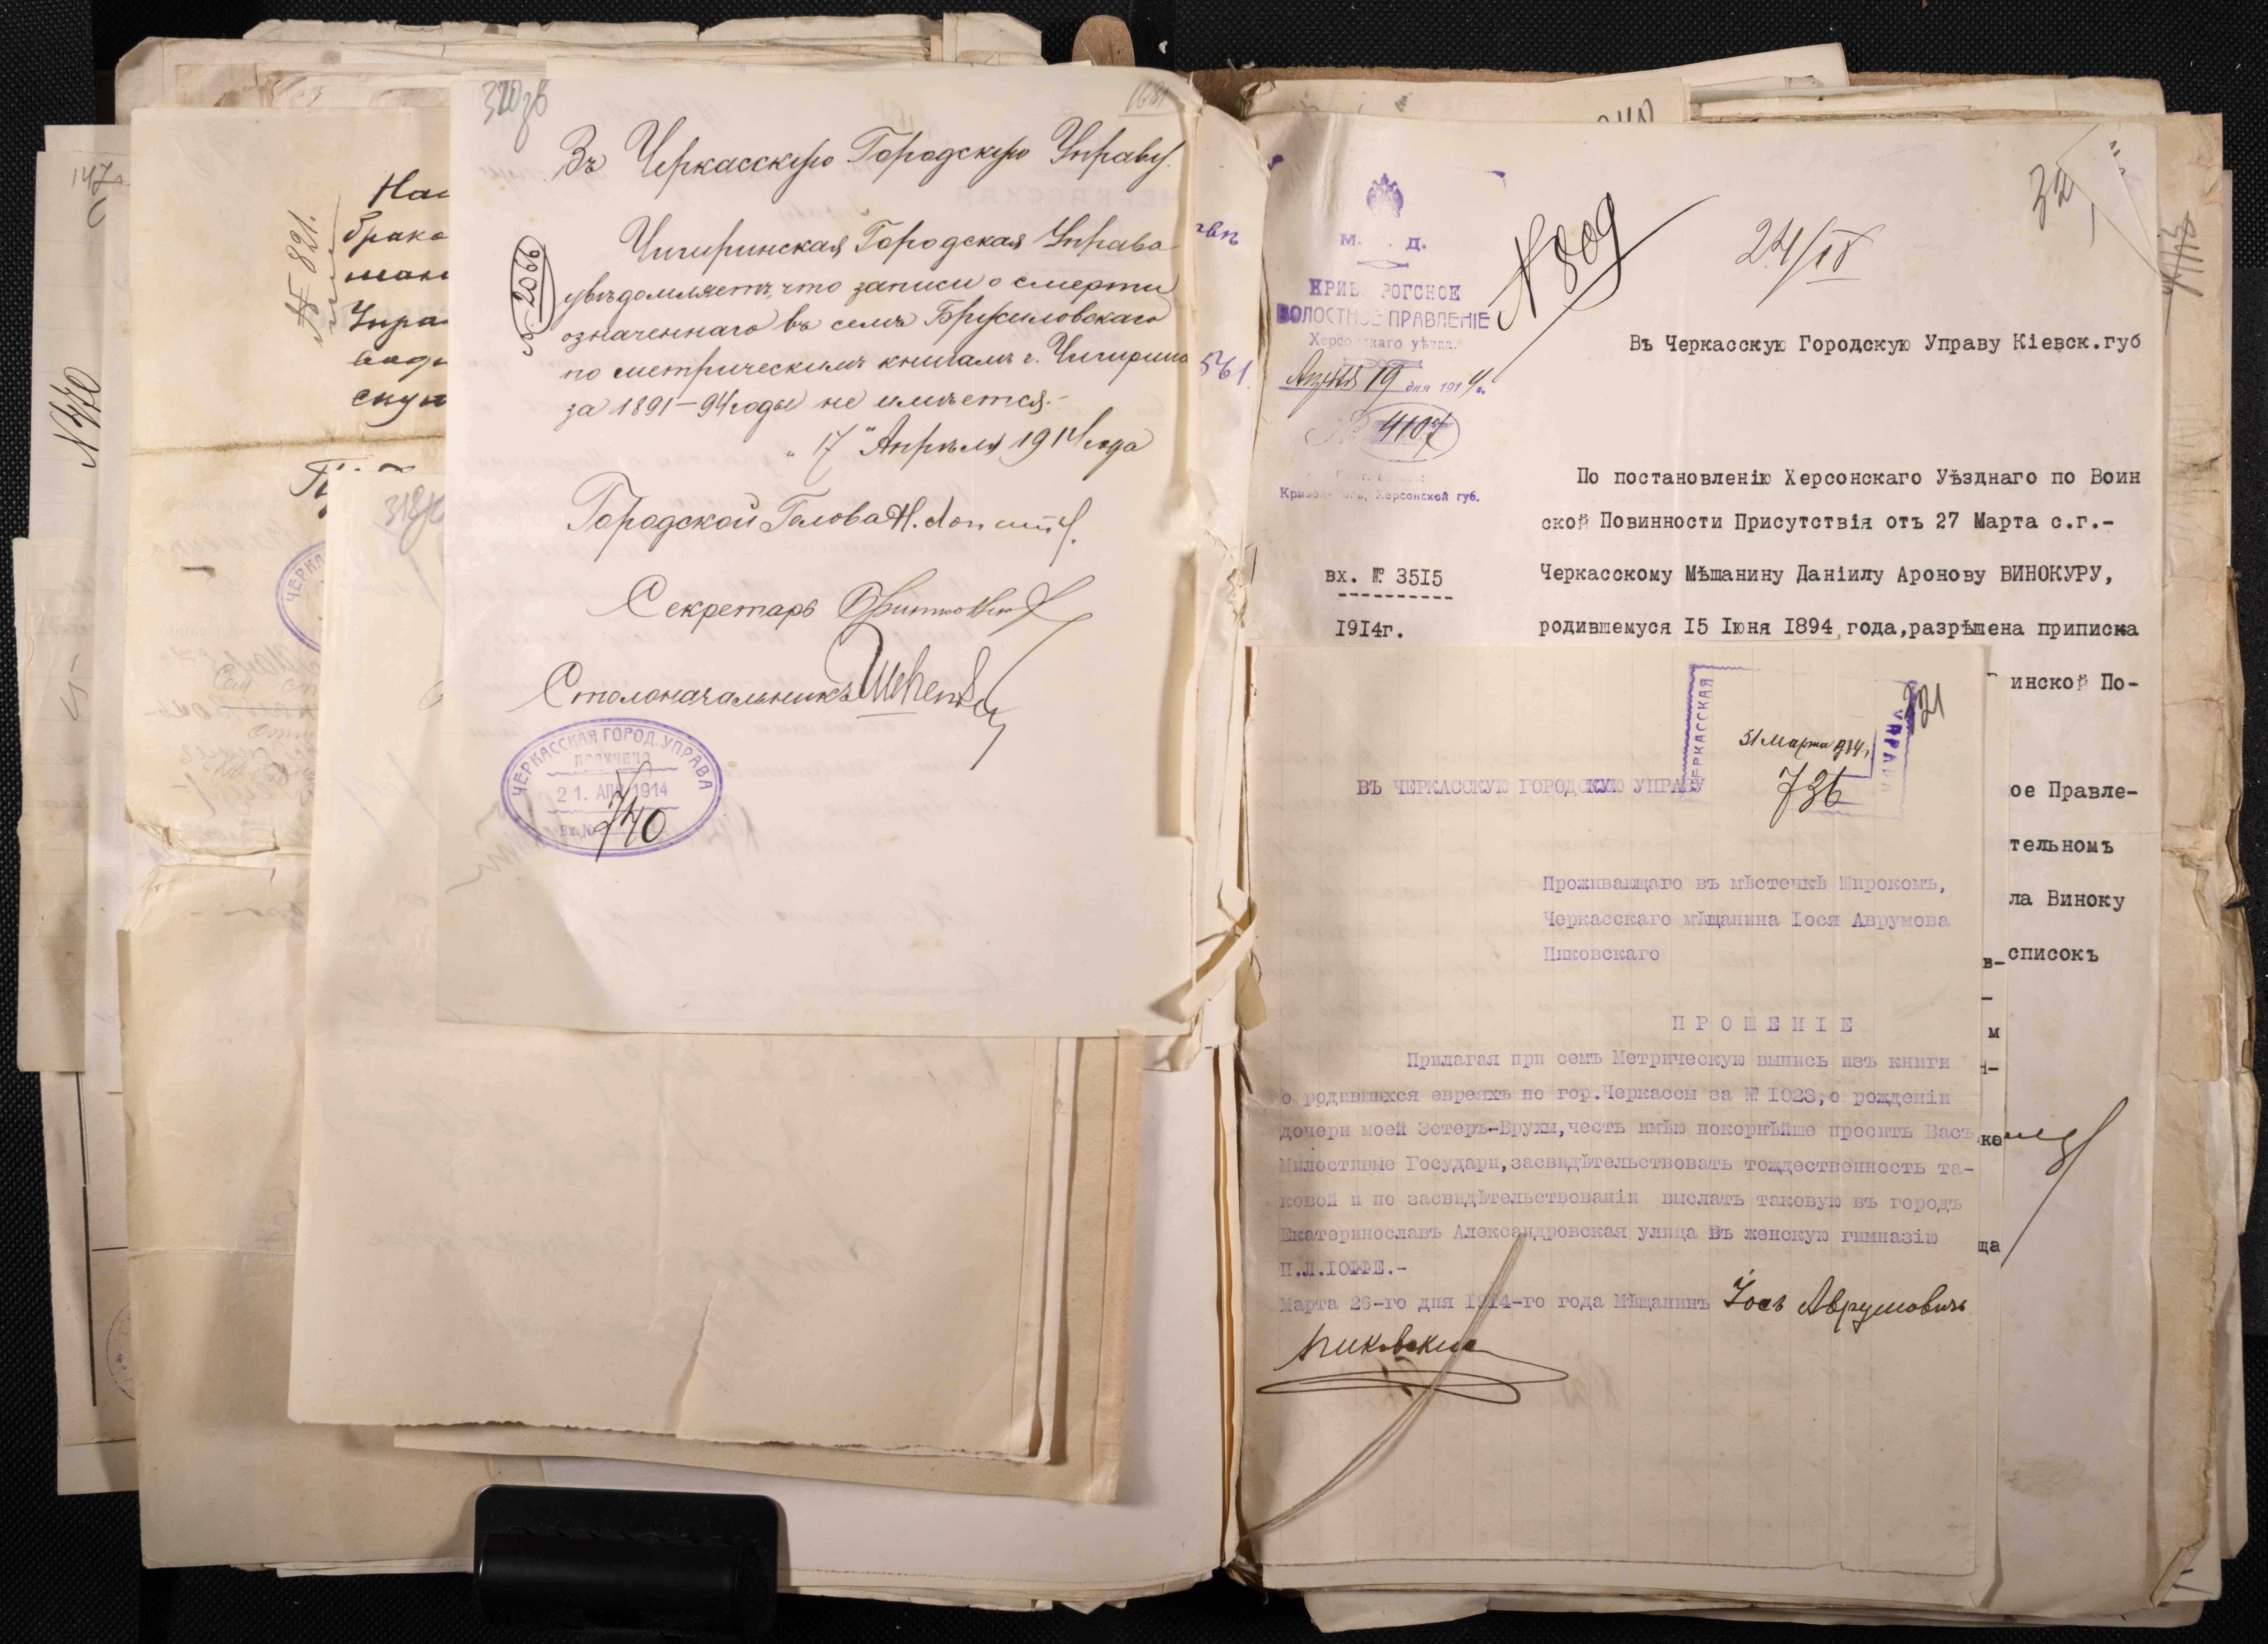 147
N 470
№ 821.
Наш
брако
Упра
скую
318
320об
1681
Въ Черкасскую Городскую Управу.
№ 2066
Чигиринская Городская Управа
увѣдомляетъ, что записи о смерти
означеннаго въ семъ Брусиловскаго
по метрическимъ книгамъ г. Чигирина
за 1891–94 годы не имѣется.–
„17" Апрѣля 1914 года
Городской Голова Н.
Секретарь
Столоначальникъ
ЧЕРКАССКАЯ ГОРОД. УПРАВА
ПОЛУЧЕНО
21. АПР 1914
Вх. №
740
561
М. Д.
КРИВ РОГСКОЕ
ВОЛОСТНОЕ ПРАВЛЕНІЕ
Херсонскаго уѣзда.
Апрѣля 19 дня 1914 г.
№ 4107
Херсонской губ.
N 809
24/IV
32
Въ Черкасскую Городскую Управу Кіевск.губ
По постановленію Херсонскаго Уѣзднаго по Воин
ской Повинности Присутствія отъ 27 Марта с.г.-
вх. № 35I5
Черкасскому Мѣшанину Даніилу Аронову ВИНОКУРУ,
I9I4г.
родившемуся I5 Іюня I894 года,разрѣшена приписка
инской По-
ое Правле-
тельномъ
ла Виноку
списокъ
в-
-
м
ке
ща
321
ЧЕРКАССКАЯ
УПРАВА
31 Марта 914 г.
736
ВЪ ЧЕРКАССКУЮ ГОРОДСКУЮ УПРАВУ
Проживающаго въ мѣстечкѣ Широкомъ,
Черкасскаго мѣщанина Іося Аврумова
Пиковскаго
П Р О Ш Е Н І Е
Прилагая при семъ Метрическую выпись изъ книги
о родившихся евреяхъ по гор.Черкассы за № I023,о рожденіи
дочери моей Эстеръ-Брухи,честь имѣю покорнѣйше просить Васъ
Милостивые Государи,засвидѣтельствовать тождественность та-
ковой и по засвидѣтельствованіи выслать таковую въ городъ
Екатеринославъ Александровская улица Въ женскую гимназію
П.Л.ІОФФЕ.-
Марта 26-го дня I9I4-го года Мѣщанинъ Іось Аврумовичъ
Пиковскій